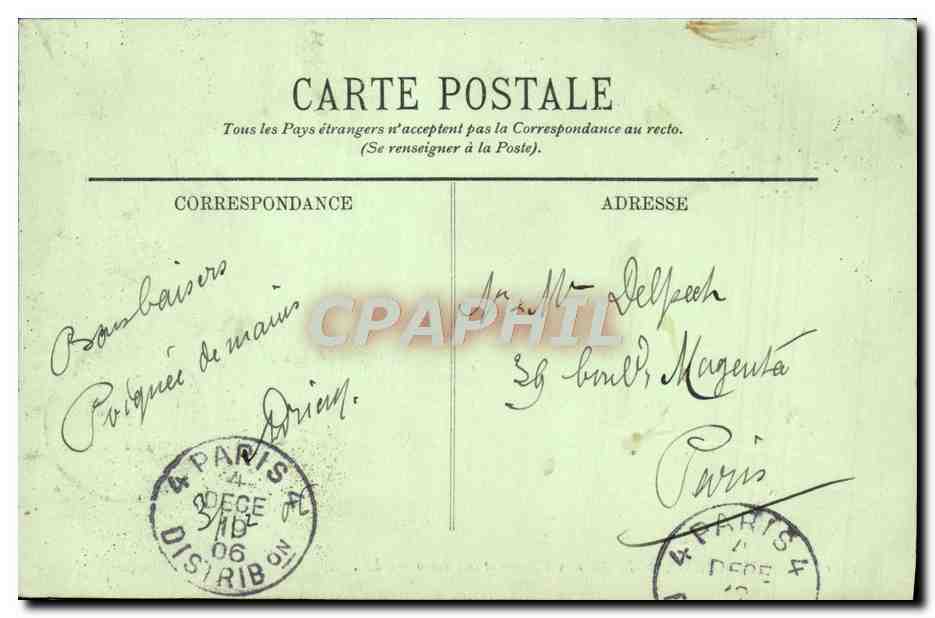 CARTE POSTALE
Tous les Pays étrangers n'acceptent pas la Correspondance au recto.
(Se renseigner à la Poste).
CORRESPONDANCE
Bons baisers
Poignée de mains
ADRESSE
Mr & Mme Delpech
39 boul.d Magenta
Paris
CPAPHIL
4 PARIS 4
4
DECE
19
06
DISTRIBON
4 PARIS 4
4
DECE